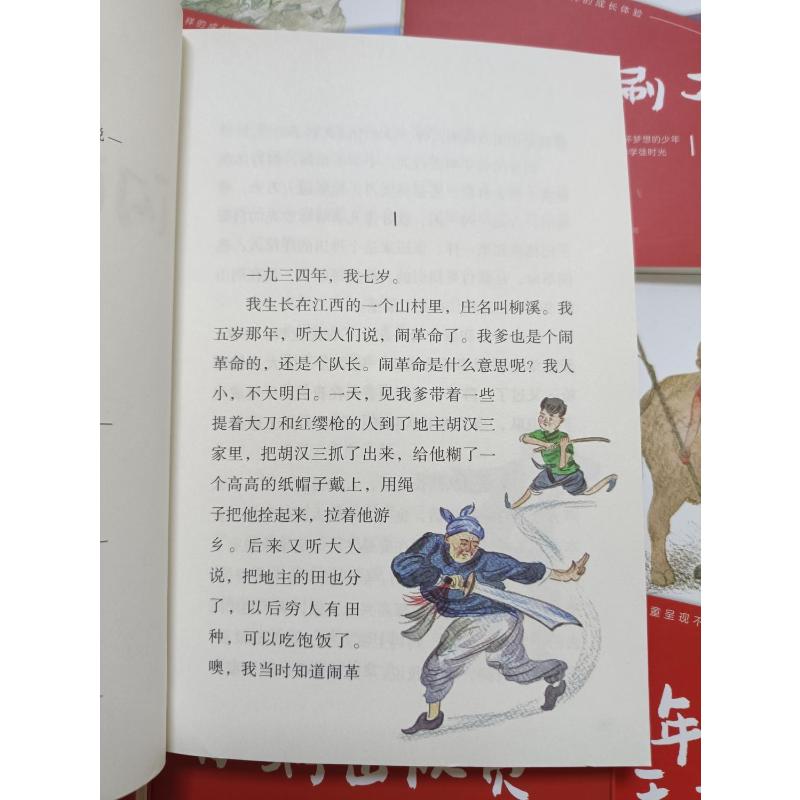 1
一九三四年，我七岁。
我生长在江西的一个山村里，庄名叫柳溪。我
五岁那年，听大人们说，闹革命了。我爹也是个闹
革命的，还是个队长。闹革命是什么意思呢？我人
小，不大明白。一天，见我爹带着一些
提着大刀和红缨枪的人到了地主胡汉三
家里，把胡汉三抓了出来，给他糊了一
个高高的纸帽子戴上，用绳
子把他拴起来，拉着他游
乡。后来又听大人
说，把地主的田也分
了，以后穷人有田
种，可以吃饱饭了。
噢，我当时知道闹革
样的成长体验
刷
梦想的少年
学徒时光
呈现不
年